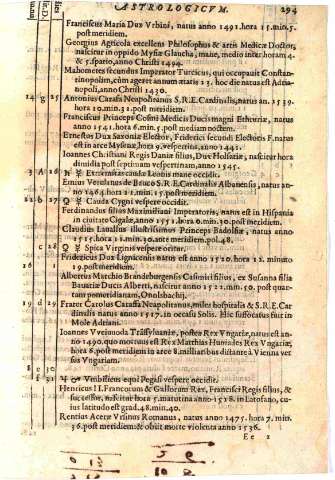 ASTROLOGICUM. 294
Franciscus Maria Dux Vrbini, natus anno 1491. hora 15. min. 5.
post meridiem.
Georgius Agricola excellens Philosophus & artis Medicæ Doctor,
nascitur in oppido Mysiæ Glaucha, mane, medio inter horam 4.
& 5. spatio, anno Christi 1494.
Mahometes secundus Imperator Turcicus, qui occupauit Constan-
tinopolim, cùm ageret annum ætatis 23. hoc die natus est Adria-
nopoli, anno Christi 1430.
14 g 25 Antonius Carafa Neapolitanus S.R.E. Cardinalis, natus an. 1539.
hora 10. min. 31. post meridiem.
Franciscus Princeps Cosmi Medicis Ducis magni Etruriæ, natus
anno 1541. hora 6. min. 5. post mediam noctem.
Ernestus Dux Saxoniæ Elector, Friderici secundi Electoris F. natus
est in arce Myseuæ, hora 9. vespertina, anno 1441.
Ioannes Christiani Regis Daniæ filius, Dux Holsatiæ, nascitur hora
dimidia post septimam vespertinam, anno 1545.
3 A 26 ♄ ☿ Extremitas caudæ Leonis mane occidit.
Emius Verulanus de Bruco S.R.E. Cardinalis Albanensis, natus an-
no 1484. hora 21. min. 15. post meridiem.
22 b 27 ♀ Cauda Cygni vespere occidit.
Ferdinandus filius Maximiliani Imperatoris, natus est in Hispania
in ciuitate Cigale, anno 1551. hora 0. min. 30. post meridiem.
Claudius Laualius illustrissimus Princeps Badolsiæ, natus anno
1515. hora 11. min. 30. ante meridiem, pol. 48.
c 28 ♀ ☿ Spica Virginis vespere oritur.
Fridericus Dux Lignicensis natus est anno 1520. hora 12. minuto
19. post meridiem.
11 d Albertus Marchio Brandeburgensis Casimiri filius, ex Susanna filia
Bauariæ Ducis Alberti, nascitur anno 1522. mm. 50. post quar-
tam pomeridianam, Onolsbachij.
19 d 29 Frater Carolus Caraffa Neapolitanus, miles hospitalis & S.R.E. Car
dinalis natus anno 1517. in occasu Solis. Hic suffocatus fuit in
Mole Adriani.
Ioannes Vveiuoda Träsylvaniæ, postea Rex Vngariæ, natus est an-
no 1490. quo mortuus est Rex Matthias Huniades Rex Vngariæ,
hora 6. post meridiem in arce 8. milliaribus distante à Vienna ver
sus Vngariam.
8 e 30
f 31 ♃ ♂ Vmbilicus equi Pegasi vespere occidit.
Henricus II. Francorum & Gallorum Rex, Francisci Regis filius, &
successor, nascitur hora 5. matutina anno 1518. in Lotofano, cu-
ius latitudo est grad. 48. min. 40.
Rentius Acere Vrsinus Romanus, natus anno 1475. hora 7. min.
36. post meridiem: & obijt morte violenta anno 1536.
Ee 2